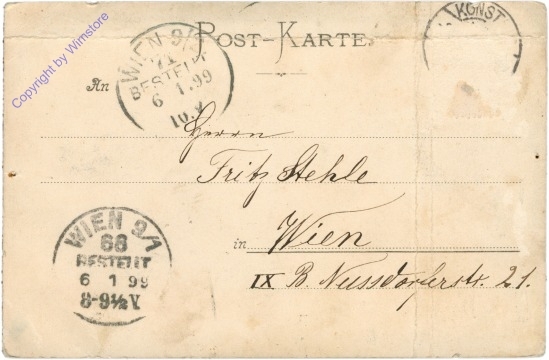 POST-KARTE.
KONST
WIEN 9/1
71
BESTELLT
6 1.99
10.V
An
Herrn
Fritz Stehle
in Wien
IX B. Nussdorferstr. 21.
WIEN 9/1
68
BESTELLT
6 1 99
8-9½V
Copyright by Wimstore